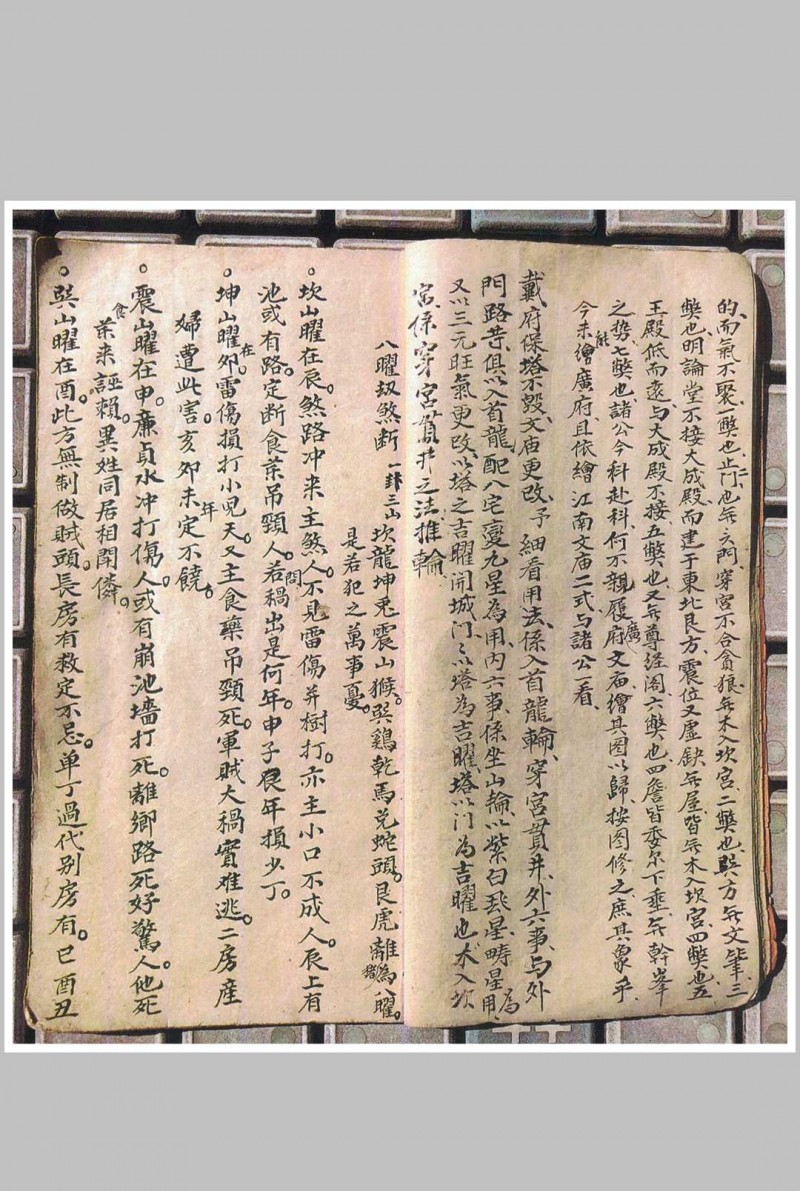 的、而氣不聚、一弊也、止二門也、無六門、穿宮不合貪狼、無木入坎宮、二弊也、巽方無文筆、三
弊也、明論堂不接大成殿、而建于東北艮方、震位又虛缺無屋、皆無木入坎宮、四弊也、五
王殿低而遠、与大成殿不接、五弊也、又無尊经阁、六弊也、四詹皆委尔下垂、無幹峯
之势、七弊也、諸公今科赴科、何不親履廣府文庙、繪其图以歸、按图修之、庶其象乎、
今未能繪廣府、且依繪江南文庙二式、与諸公一看、
戴府保塔不毀、文庙更改、予細看用法、係入首龍輪、穿宮貫井、外六事、与外
門路䓁、俱以入首龍、配八宅變九星為用、内六事、係坐山輪、以紫白飛星疇星為用、
又以三元旺氣更改、以塔之吉曜開城門、以塔為吉曜、塔以門為吉曜也、木入坎
宮、係穿宮貫井之法推輪、
八曜刼煞断 一卦三山 坎龍坤兎震山猴。巽鷄乾馬兑蛇頭。艮虎離猪為八曜。
是若犯之萬事憂。
坎山曜在辰。煞路冲来主煞人。不見雷傷并樹打。亦主小口不成人。辰上有
池或有路。定断食药吊頸人。若问禍出是何年。申子辰年損少丁。
坤山曜在夘。雷傷損打小児夭。又主食藥吊頸死。軍賊大禍實难逃。二房産
婦遭此害。亥夘未年定不饒。
震山曜在申。廉貞水冲打傷人。或有崩池墻打死。離鄉路死好驚人。他死
食药来誣賴。異姓同居相閙僯。
巽山曜在酉。此方無制做賊頭。長房有救定不忌。单丁過代别房有。巳酉丑